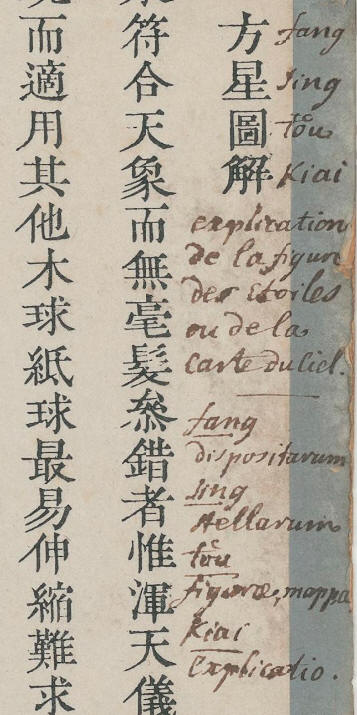 方星圖解
fang
sing
toû
Kiai
explication
de la figure
des Etoiles
ou de la
carte du Ciel.
fang
dispositarum
sing
stellarum
toû
figuræ, mappa
Kiai
Explicatio.
符合天象而無毫髮叅錯者惟渾天儀
而適用其他木球紙球最易伸縮難求